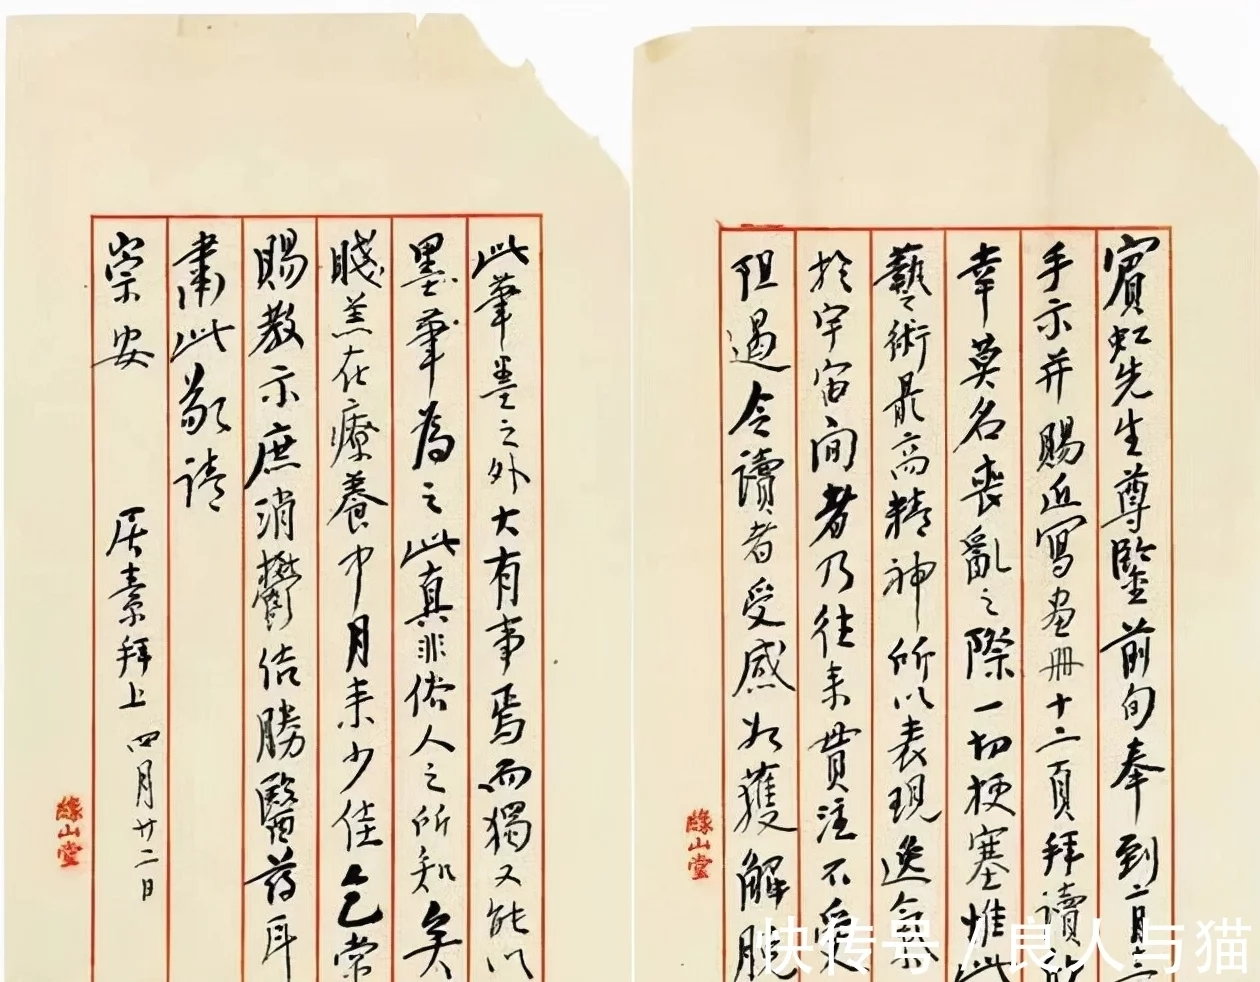 賓虹先生尊鑒前旬奉到二月三
手示并賜近寫畫冊十二頁拜讀欣
幸莫名喪亂之際一切梗塞惟此
藝術最高精神所以表現逸氣
於宇宙間者乃往来貫注不受
阻遏令讀者受感如獲解脫
此筆墨之外大有事焉而獨又能以
墨筆為之此真非俗人之所知矣
賤恙在療養中月来少佳乞常
賜教示庶消鬱結勝醫葯耳
肅此敬請
崇安
居素拜上 四月廿二日
緣山堂
緣山堂
快传号 / 良人与猫